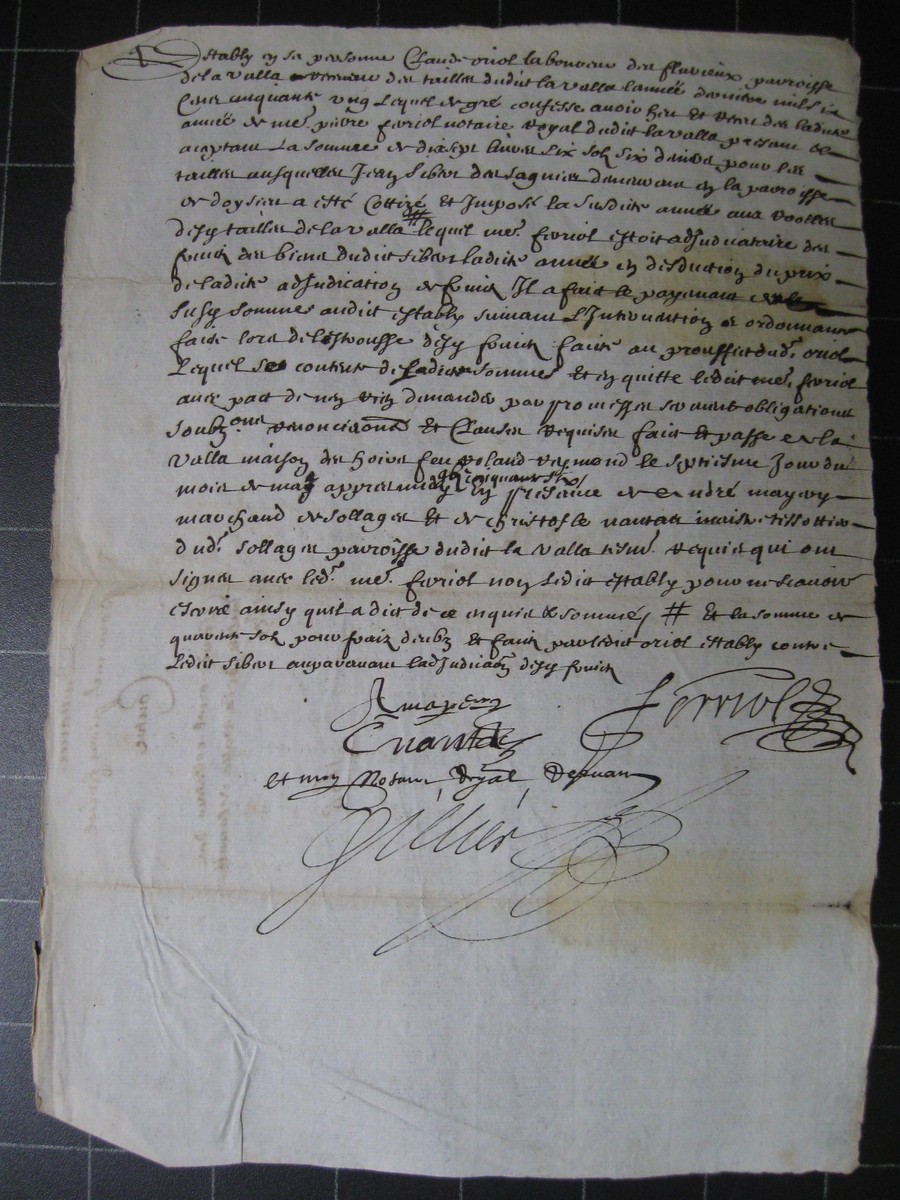 Estably en sa personne Claude oriol laboureur des fluvieux parroisse
de la valla recepveur des tailles dudit la valla l'année derniere mil six
cens cinquante ung Lequel de gré confesse avoir heu et receu des ladite
année de me. pierre ferriol notaire royal dudit la valla present et
acceptant La somme de dix sept livres six solz six deniers pour les
tailles ausquelles Jean sibert des sagnies demeurant en la parroisse
de doysieu a esté Cottizé et Imposé la susdite année aux roolles
desd. tailles de la valla # lequel me. ferriol estoit adjudicataire des
fruictz des biens dudit sibert ladite année en desduction du prix
de ladite adjudication de fruictz Il a faict le payement
susd. somme audit estably suivant L'Intervention et ordonnance
faite lors de l'estrousse desd. fruictz faite au prouffict dud. oriol
Lequel se contente de ladite somme Et en quitte ledit me. ferriol
avec pact de n'en rien demander par promesses serment obligations
soubz ons renonciaons Et Clauses requises fait et passé a la
valla maison des hoirs feu roland reymond le septiesme Jour du
mois de may appres midy gbi cinquante En presence de andré mayery
marchand de sollages Et de christofle nantas tissottier
dud. sollages parroisse dudit la valla tesm. requis qui ont
signes avec led. me. ferriol non ledit estably pour ne scavoir
escrire ainsy qu'il a dict de ce enquis et sommé # et la somme de
quarente solz pour fraiz deubz et faictz par ledit oriol estably contre
Ledit sibert auparavant l'adjudicaon desd. fruictz
A mayery
Ferriol
C nantas
et moy Notaire Royal Recepvant
Gillier